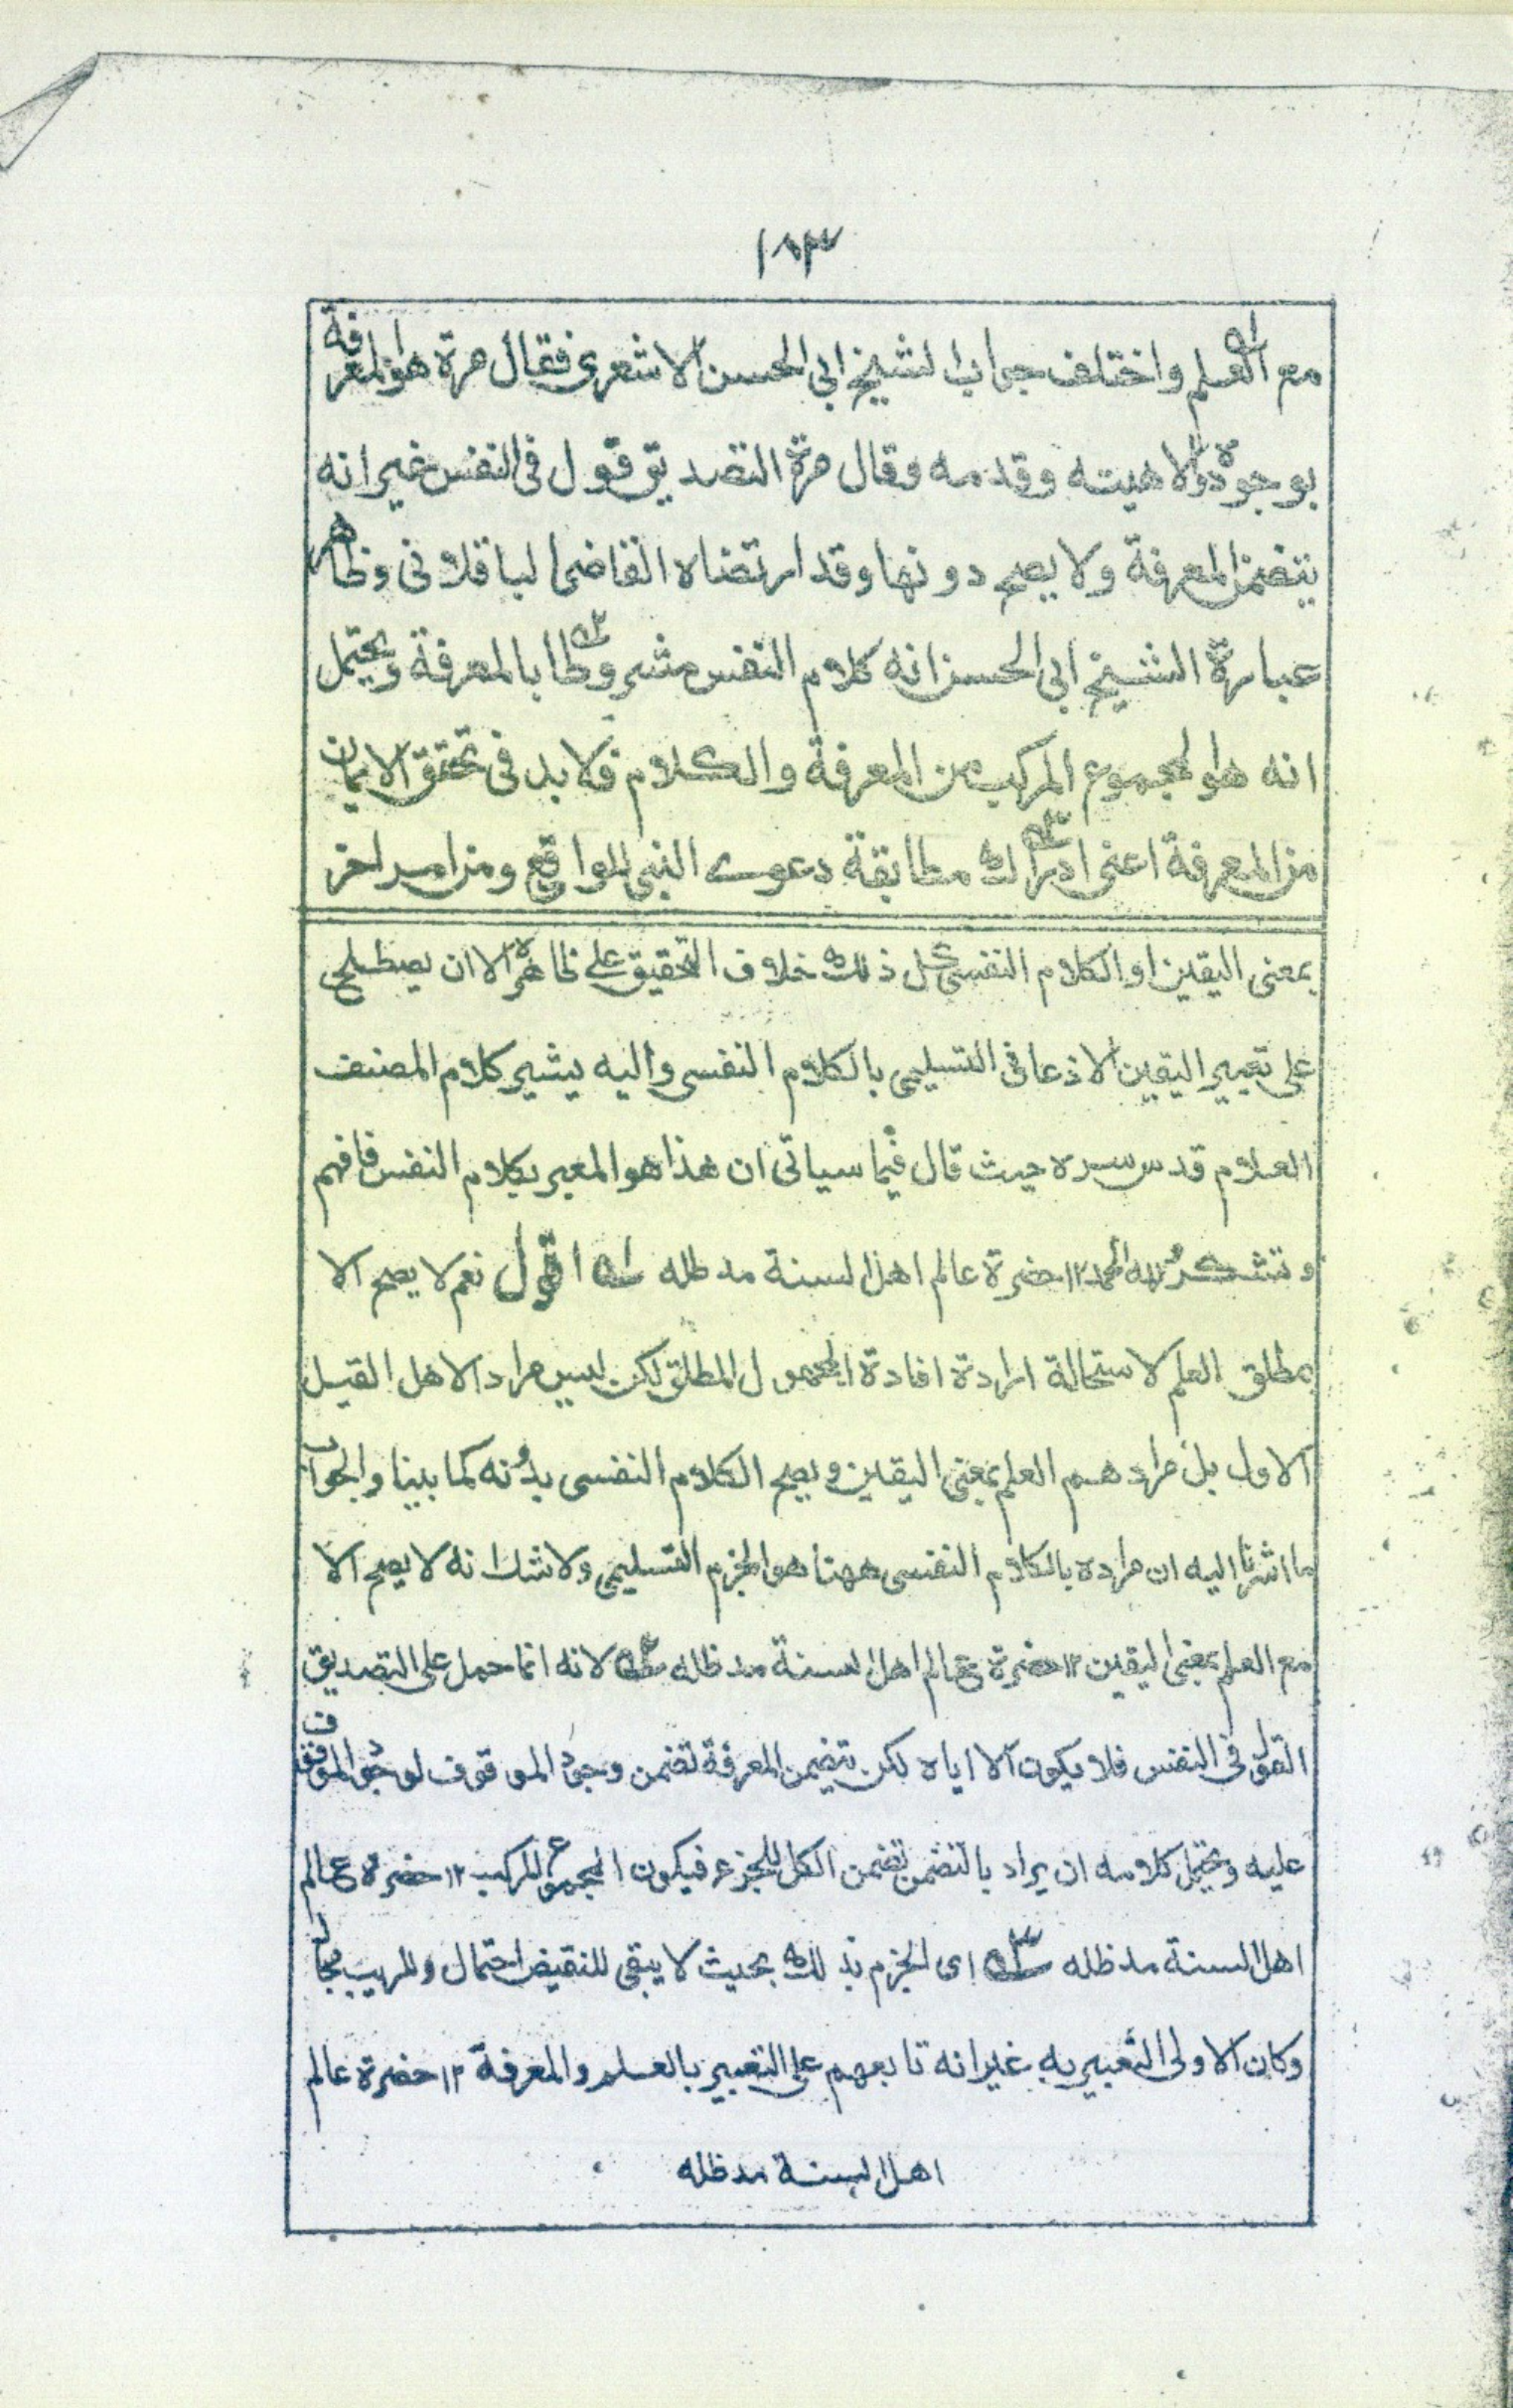 ١٨٣
مع العلم واختلف جواب الشيخ ابي الحسن الاشعرى فقال مرة هو المعرفة
بوجوده والاهيته وقدمه وقال مرة التصديق قول فى النفس غير انه
يتضمن المعرفة ولا يصح دونها وقد ارتضاه القاضى الباقلانى وظاهر
عبارة الشيخ ابى الحسن انه كلام النفس مشروطا بالمعرفة ويحتمل
انه هو المجموع المركب من المعرفة والكلام فلا بد فى تحقق الايمان
من المعرفة اعنى ادراك مطابقة دعوى النبى للواقع ومن امر اخر
بمعنى اليقين او الكلام النفسى كل ذلك خلاف التحقيق على ظاهره الا ان يصطلح
على تعبير اليقين الاذعانى التسليمى بالكلام النفسى واليه يشير كلام المصنف
العلام قدس سره حيث قال فيما سياتى ان هذا هو المعبر بكلام النفس فافهم
وتشكر لله الحمد ١٢ حضرة عالم اهل السنة مد ظله ١ه اقول نعم لا يصح الا
بمطلق العلم لاستحالة ارادة افادة المجهول المطلق لكن ليس مراد الاهل القيل
الاول بل مرادهم العلم بمعنى اليقين ويصح الكلام النفسى بدونه كما بينا والجواب
ما اشرنا اليه ان مراده بالكلام النفسى ههنا هو الجزم التسليمى ولا شك انه لا يصح الا
مع العلم بمعنى اليقين ١٢ حضرة عالم اهل السنة مد ظله ٢ه لانه انما حمل على التصديق
القول فى النفس فلا يكون الا اياه لكن يتضمن المعرفة تضمن وجود الموقوف لوجود الموقوف
عليه ويحتمل كلامه ان يراد بالتضمن تضمن الكل للجزء فيكون المجموع المركب ١٢ حضرة عالم
اهل السنة مد ظله ٣ه اى الجزم بذلك بحيث لا يبقى للنقيض احتمال وللريب مجال
وكان الاولى التعبير به غير انه تابعهم على التعبير بالعلم والمعرفة ١٢ حضرة عالم
اهل السنة مد ظله